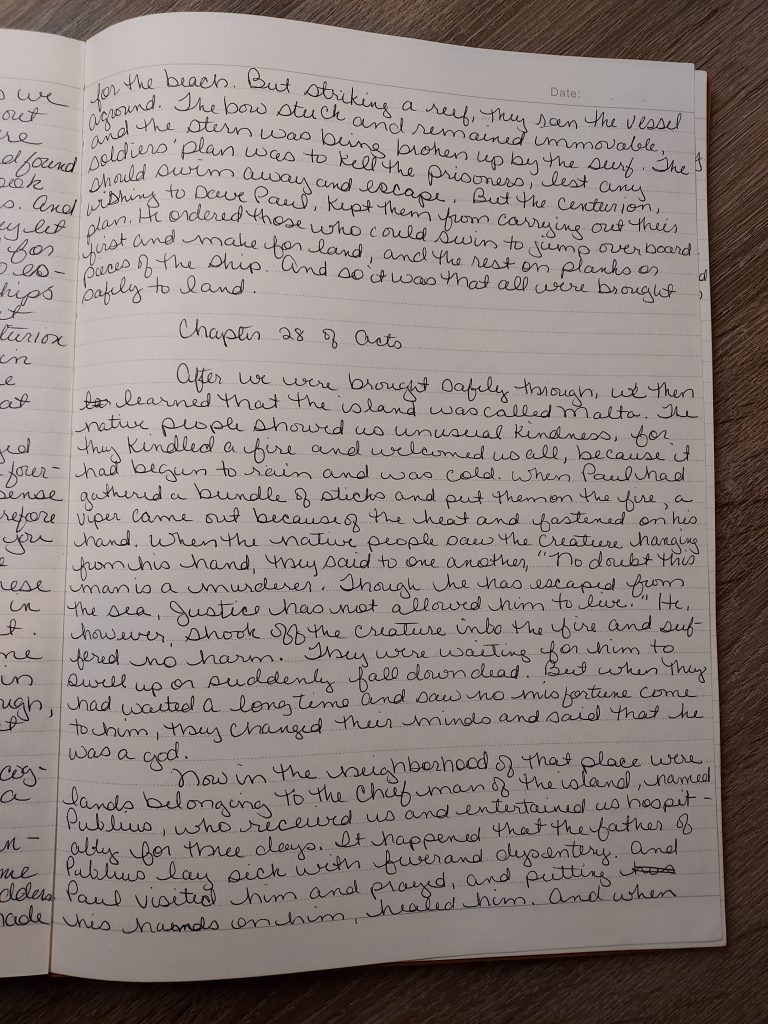 Date:
for the beach. But striking a reef, they ran the vessel
aground. The bow stuck and remained immovable,
and the stern was being broken up by the surf. The
soldiers' plan was to kill the prisoners, lest any
should swim away and escape. But the centurion,
wishing to save Paul, kept them from carrying out their
plan. He ordered those who could swim to jump overboard
first and make for land, and the rest on planks or
pieces of the ship. And so it was that all were brought
safely to land.
Chapter 28 of Acts
After we were brought safely through, we then
learned that the island was called Malta. The
native people showed us unusual kindness, for
they kindled a fire and welcomed us all, because it
had begun to rain and was cold. When Paul had
gathered a bundle of sticks and put them on the fire, a
viper came out because of the heat and fastened on his
hand. When the native people saw the creature hanging
from his hand, they said to one another, "No doubt this
man is a murderer. Though he has escaped from
the sea, Justice has not allowed him to live." He,
however, shook off the creature into the fire and suf-
fered no harm. They were waiting for him to
swell up or suddenly fall down dead. But when they
had waited a long time and saw no misfortune come
to him, they changed their minds and said that he
was a god.
Now in the neighborhood of that place were
lands belonging to the chief man of the island, named
Publius, who received us and entertained us hospit-
ably for three days. It happened that the father of
Publius lay sick with fever and dysentery. And
Paul visited him and prayed, and putting
his hands on him, healed him. And when